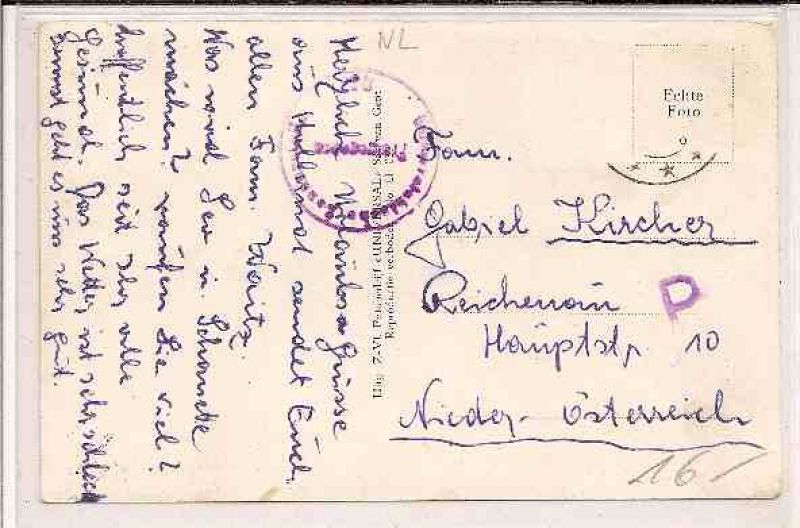 NL
Herzliche Urlaubs Grüsse
aus Holland sendet Euch
allen Fam. Waritz.
Was wird Leo u.
machen? raufen Sie viel?
hoffentlich seit Ihr alle
Gesund. Das Wetter ist sehr schlecht
sonst geht es uns sehr gut.
Uitg. Z.Vl. Persbedrijf «UNIVERSAL»
Reproductie verboden
Echte
Foto
Fam.
Gabriel Kircher
Reichenau
P
Hauptstr. 10
Nieder-Österreich
16